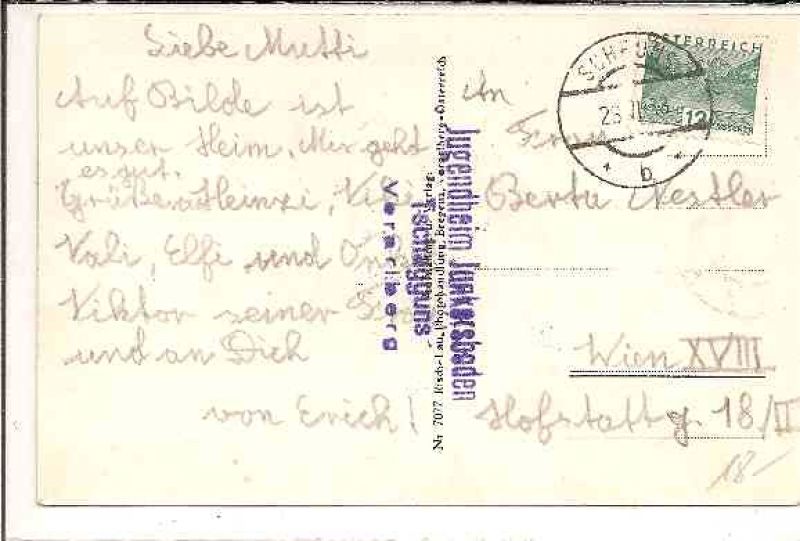 Liebe Mutti
Auf Bilde ist
unser Heim. Mir geht
es gut.
Grüße Heinzi,
Vali, Elfi und
Viktor seiner
und an Dich
von Erich!
An
Frau
Berta Nestler
Wien XVIII
Hofstattg. 18/II
18-
ÖSTERREICH
12
SCHRUNS
b
Jugendheim
Tschagguns
Vorarlberg
Nr 7077 Risch-Lau, Photohandlung, Bregenz, Vorarlberg-Österreich